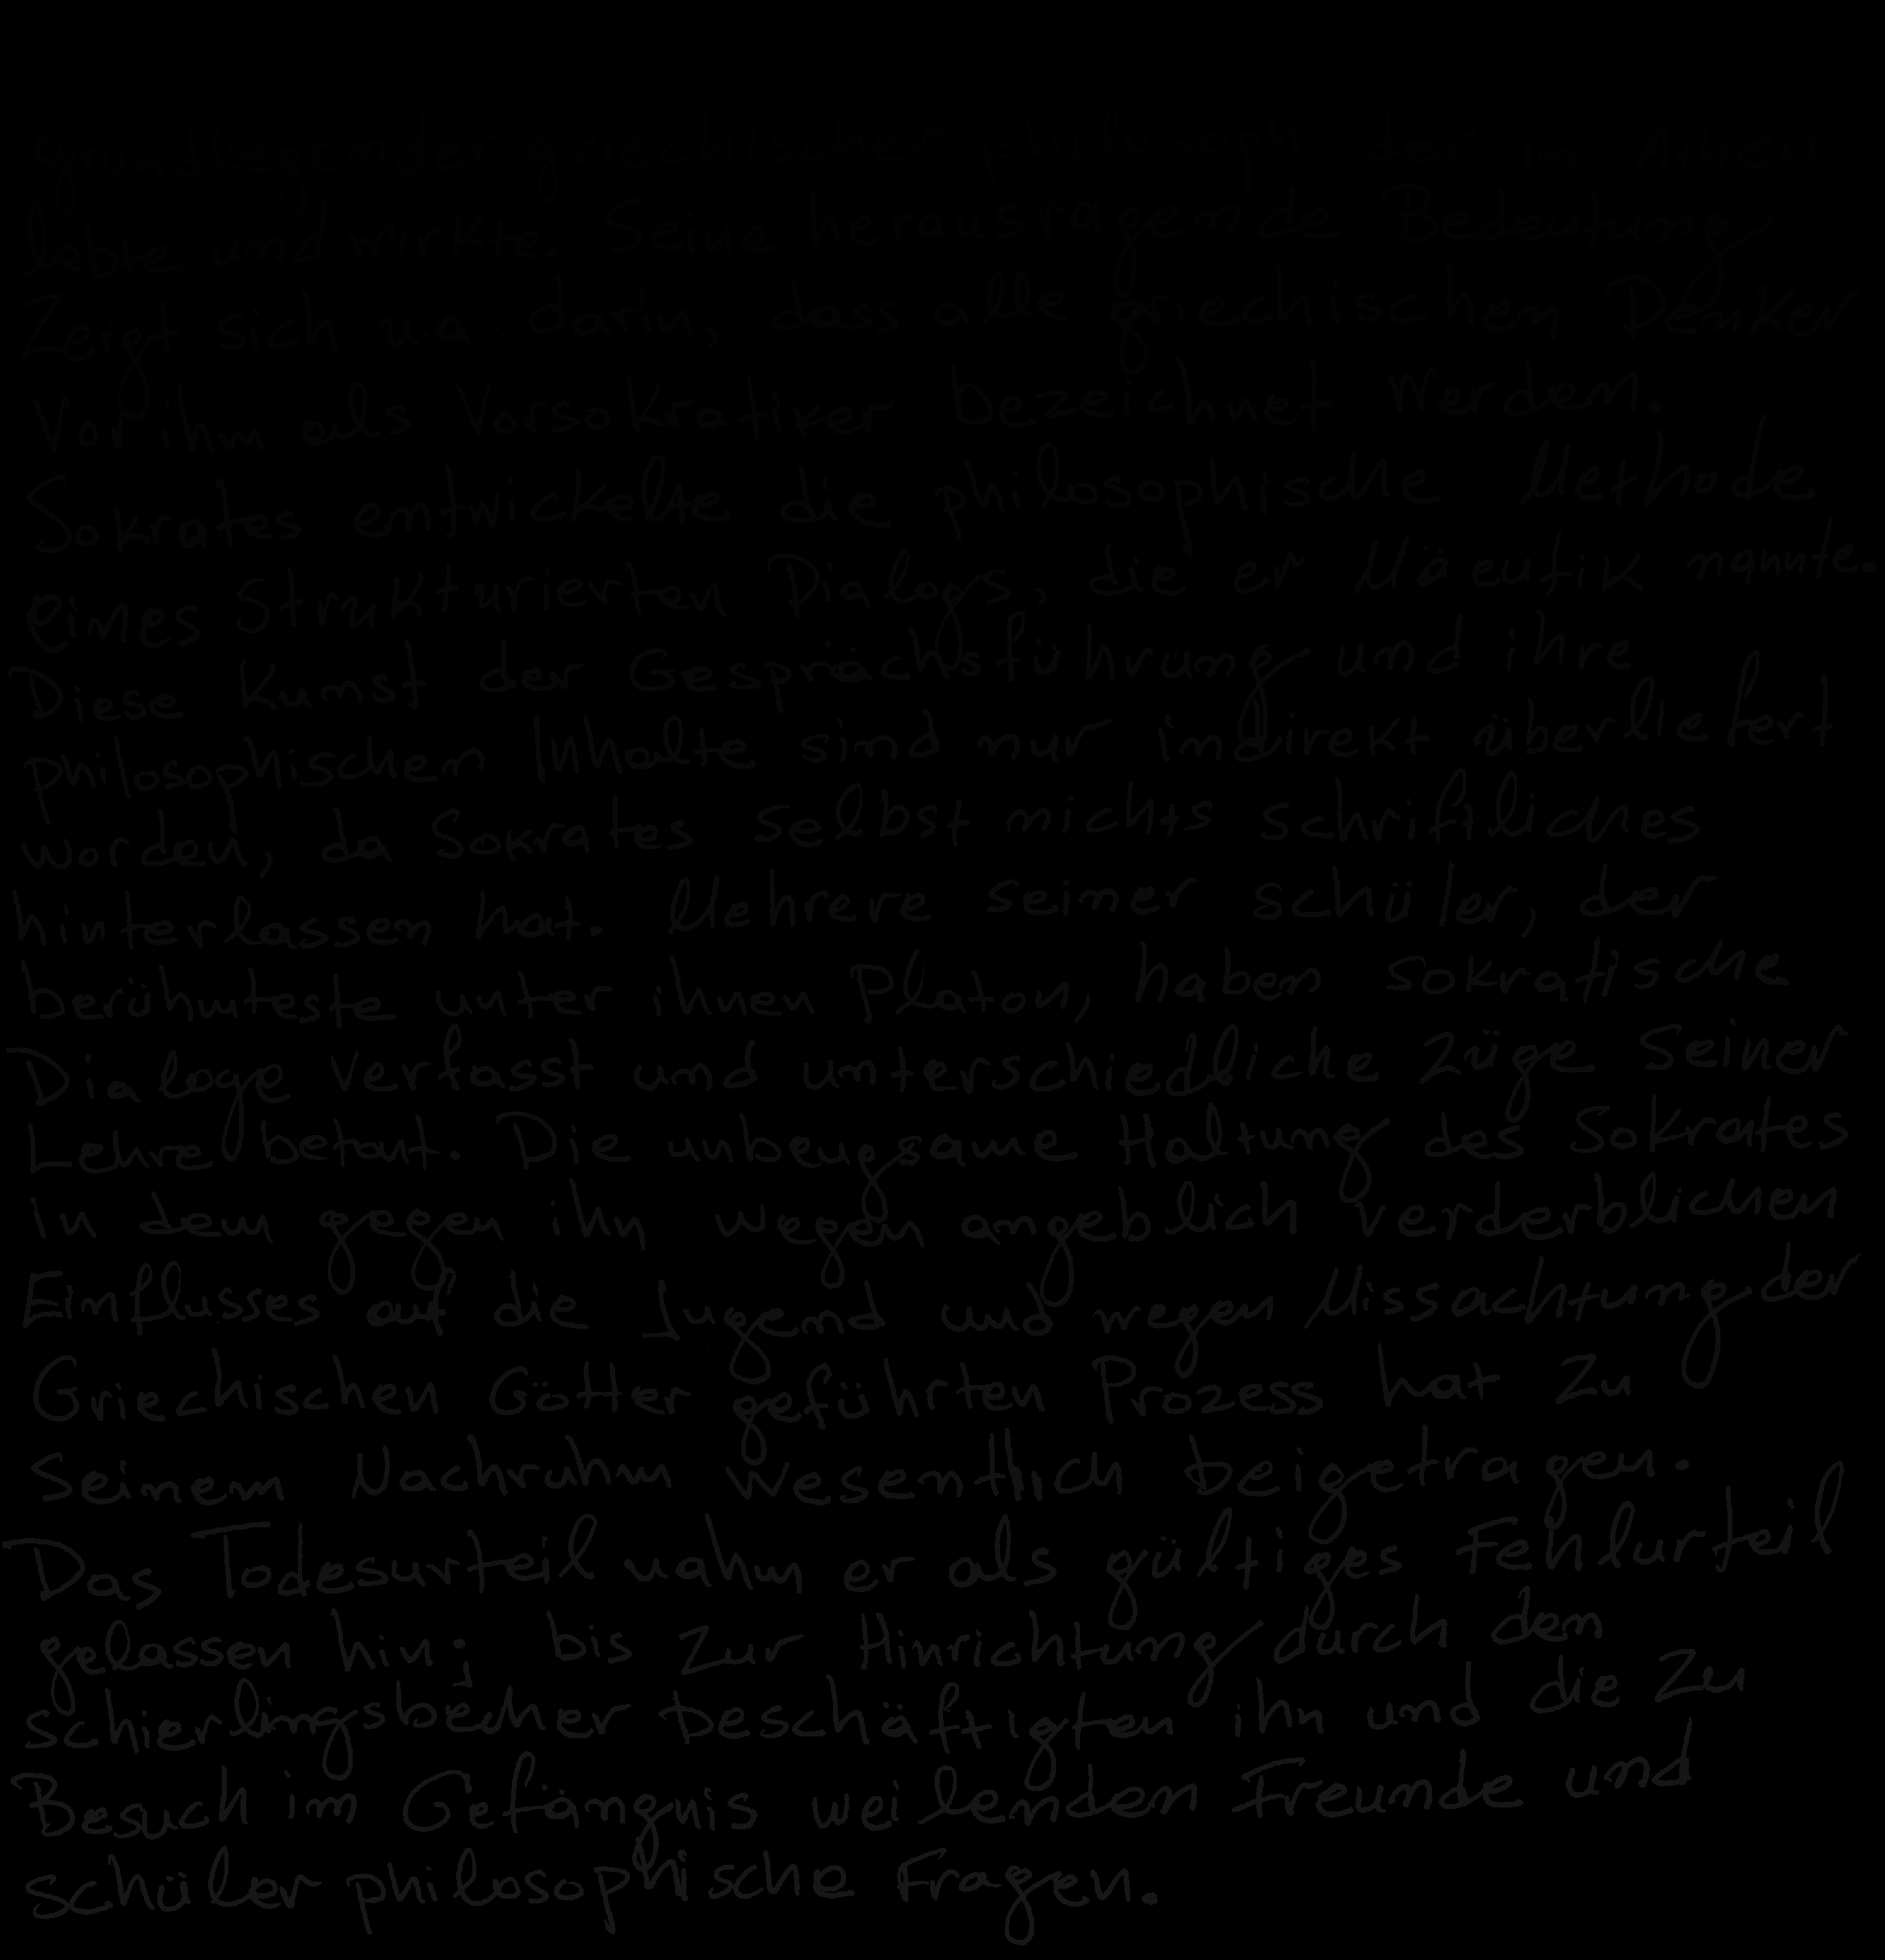 Sokrates war ein für das abendländische Denken
grundlegender griechischer philosoph, der in Athen
lebte und wirkte. Seine herausragende Bedeutung
Zeigt sich u.a. darin, dass alle griechischen Denker
Vor ihm als Vorsokratiker bezeichnet werden.
Sokrates entwickelte die philosophische Methode
eines Strukturierten Dialogs, die er Mäeutik nannte.
Diese Kunst der Gesprächsführung und ihre
philosophischen Inhalte sind nur indirekt überliefert
worden, da Sokrates selbst nichts schriftliches
hinterlassen hat. Mehrere seiner schüler, der
berühmteste unter ihnen Platon, haben sokratische
Dialoge verfasst und unterschiedliche Züge Seiner
Lehre betont. Die unbeugsame Haltung des Sokrates
in dem gegen ihn wegen angeblich verderblichen
Einflusses auf die Jugend und wegen Missachtung der
Griechischen Götter geführten Prozess hat Zu
Seinem Nachruhm wesentlich beigetragen.
Das Todesurteil nahm er als gültiges Fehlurteil
gelassen hin; bis zur Hinrichtung durch den
schierlingsbecher beschäftigten ihn und die zu
Besuch im Gefängnis weilenden Freunde und
schüler philosophische Fragen.